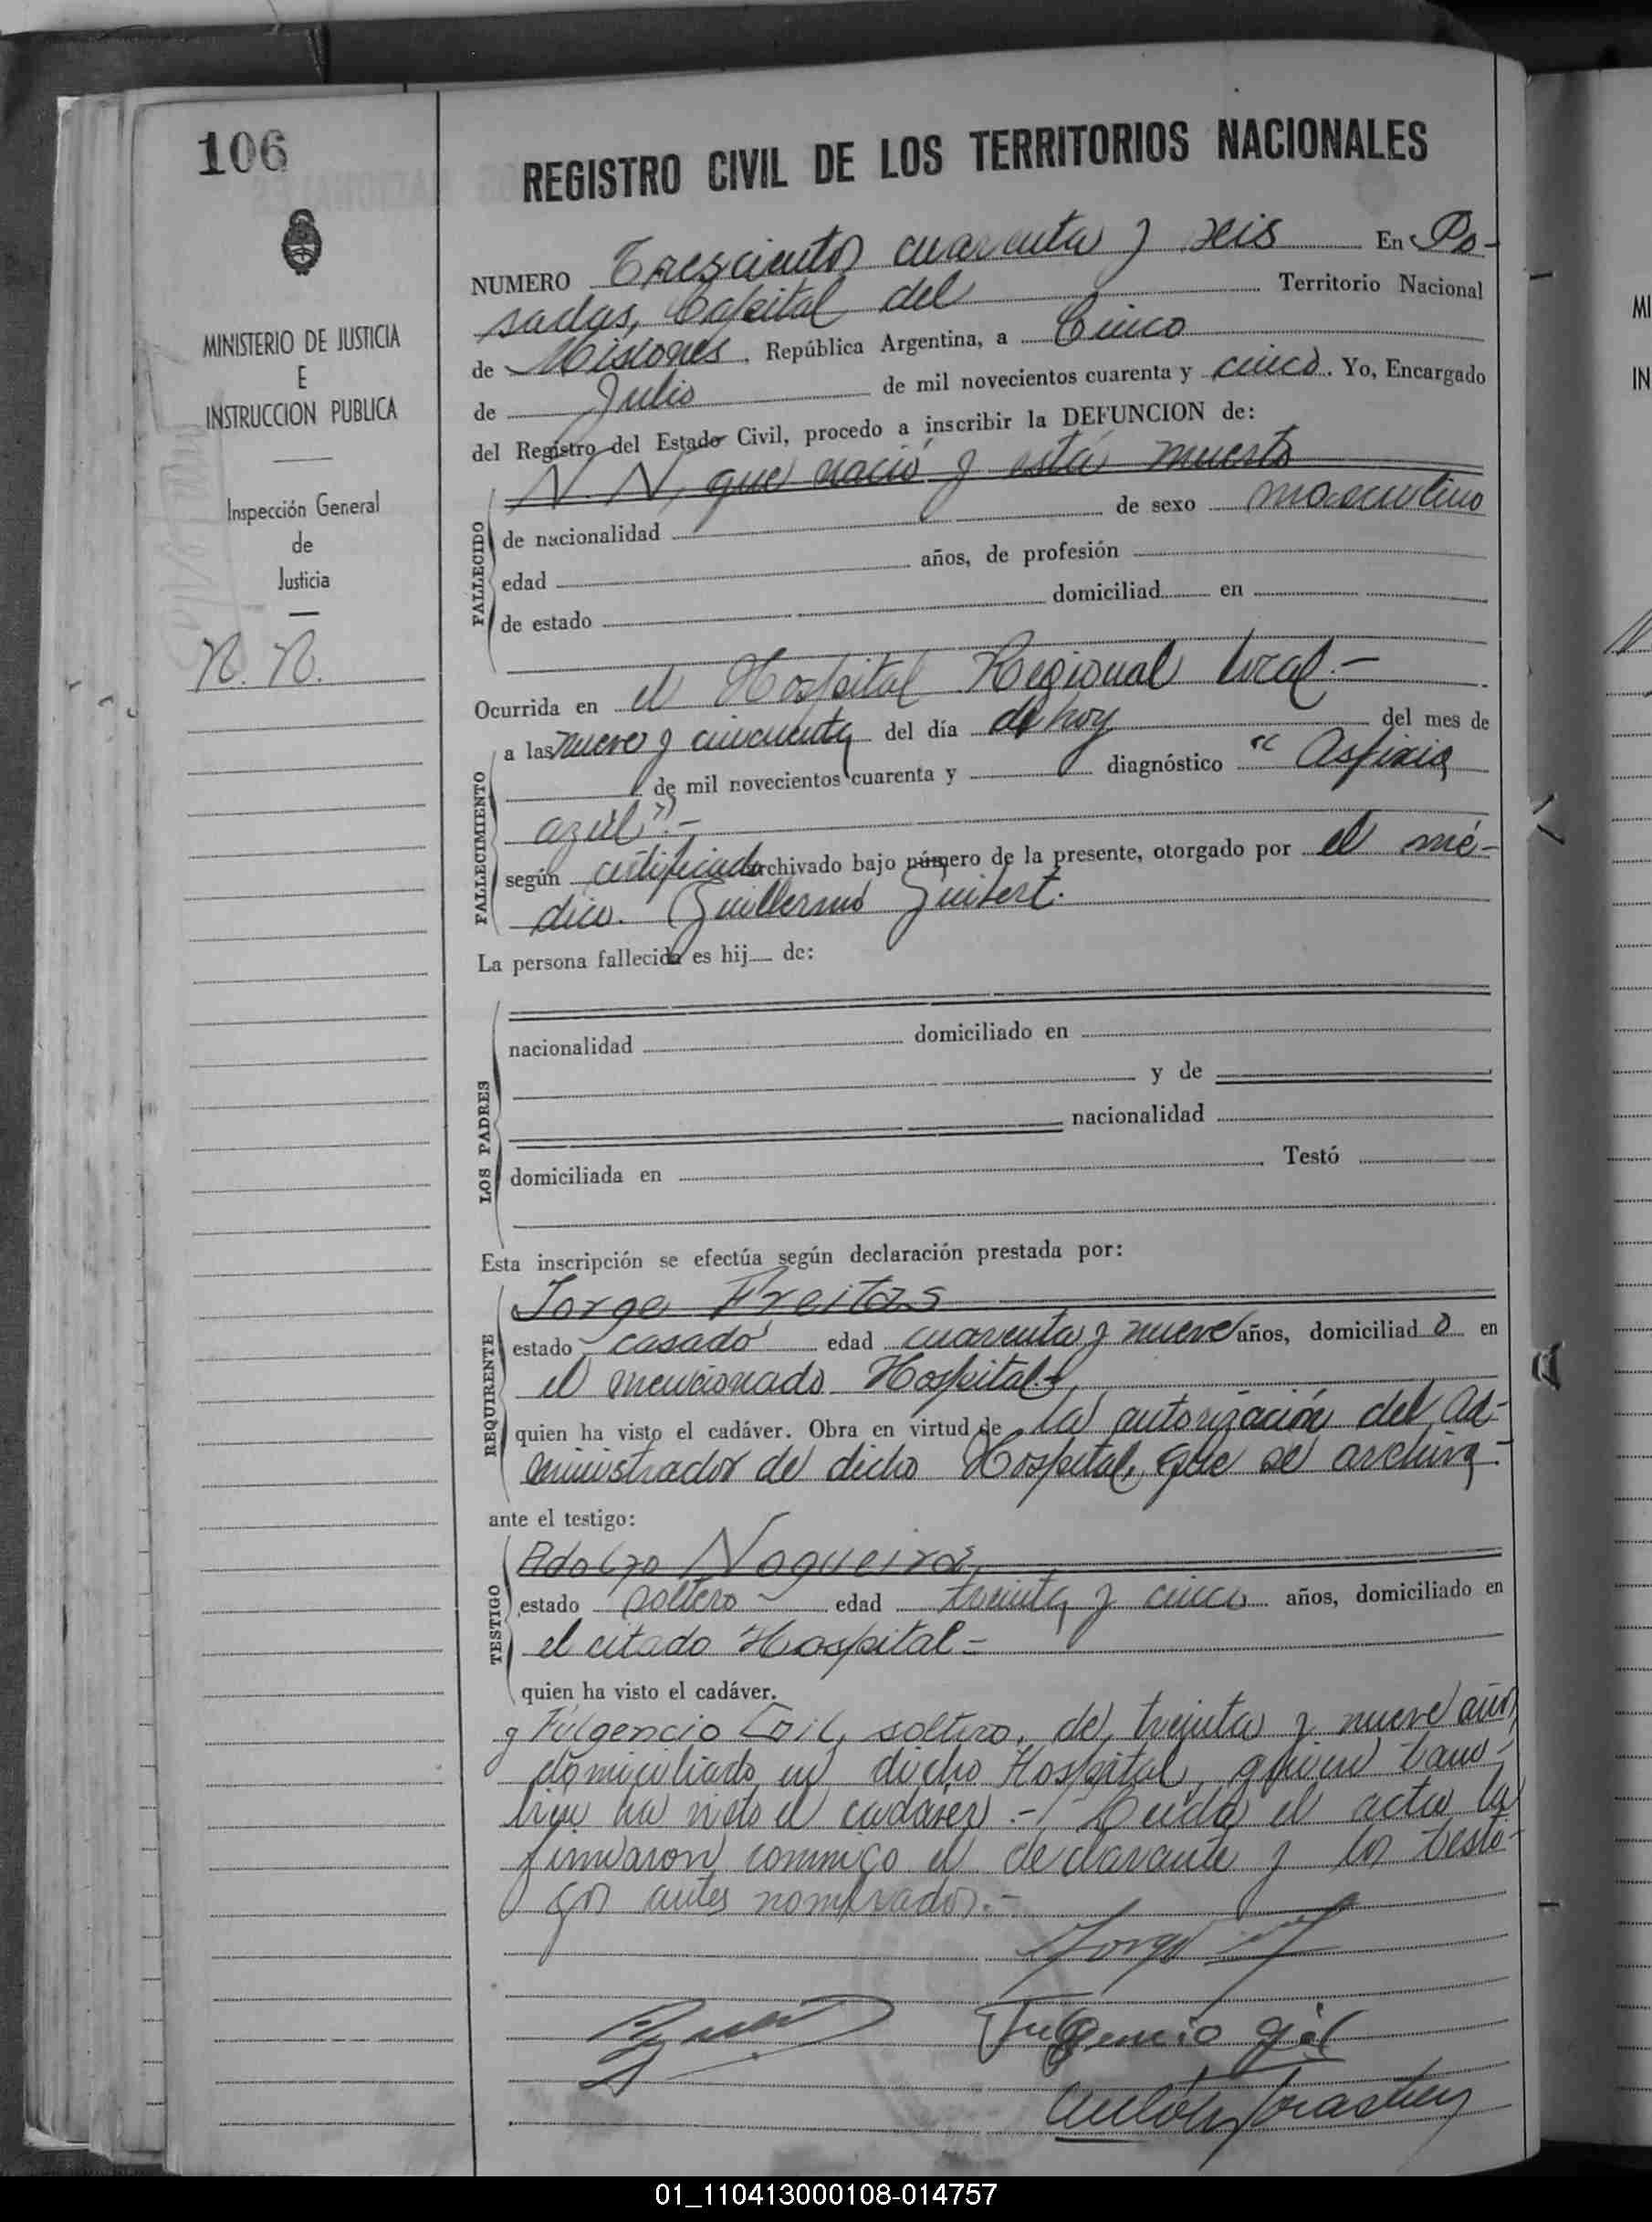 106
REGISTRO CIVIL DE LOS TERRITORIOS NACIONALES
MINISTERIO DE JUSTICIA
E
INSTRUCCION PUBLICA
Inspección General
de
Justicia
N. N.
NUMERO Trescientos cuarenta y seis En Po-
sadas, Capital del Territorio Nacional
de Misiones, República Argentina, a Cinco
de Julio de mil novecientos cuarenta y cinco. Yo, Encargado
del Registro del Estado Civil, procedo a inscribir la DEFUNCION de:
N. N, que nació y está muerto
FALLECIDO
de nacionalidad de sexo masculino
edad años, de profesión
de estado domiciliad en
Ocurrida en el Hospital Regional local.-
FALLECIMIENTO
a las nueve y cincuenta del día de hoy del mes de
de mil novecientos cuarenta y diagnóstico "Asfixia
azul".-
según certificado archivado bajo número de la presente, otorgado por el mé-
dico. Guillermo
La persona fallecida es hij de:
LOS PADRES
nacionalidad domiciliado en
y de
nacionalidad
domiciliada en Testó
Esta inscripción se efectúa según declaración prestada por:
REQUIRENTE
Jorge Freitas
estado casado edad cuarenta y nueve años, domiciliado en
el mencionado Hospital.-
quien ha visto el cadáver. Obra en virtud de la autorización del ad-
ministrador de dicho Hospital, que se archiva.-
ante el testigo:
TESTIGO
Adolfo Nogueira
estado soltero edad treinta y cinco años, domiciliado en
el citado Hospital-
quien ha visto el cadáver.
y Fulgencio Gil, soltero, de treinta y nueve años
domiciliado en dicho Hospital, quien tam-
bién ha visto el cadáver.- Leida el acta la
firmaron conmigo el declarante y los testi-
gos antes nombrados.-
Jorge
Fulgencio Gil
MI
IN
01_110413000108-014757